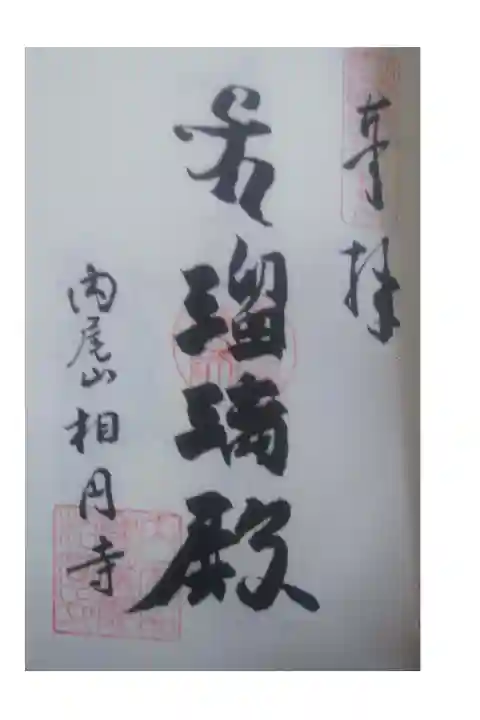 奉拝
瑠璃殿
内尾山 相円寺